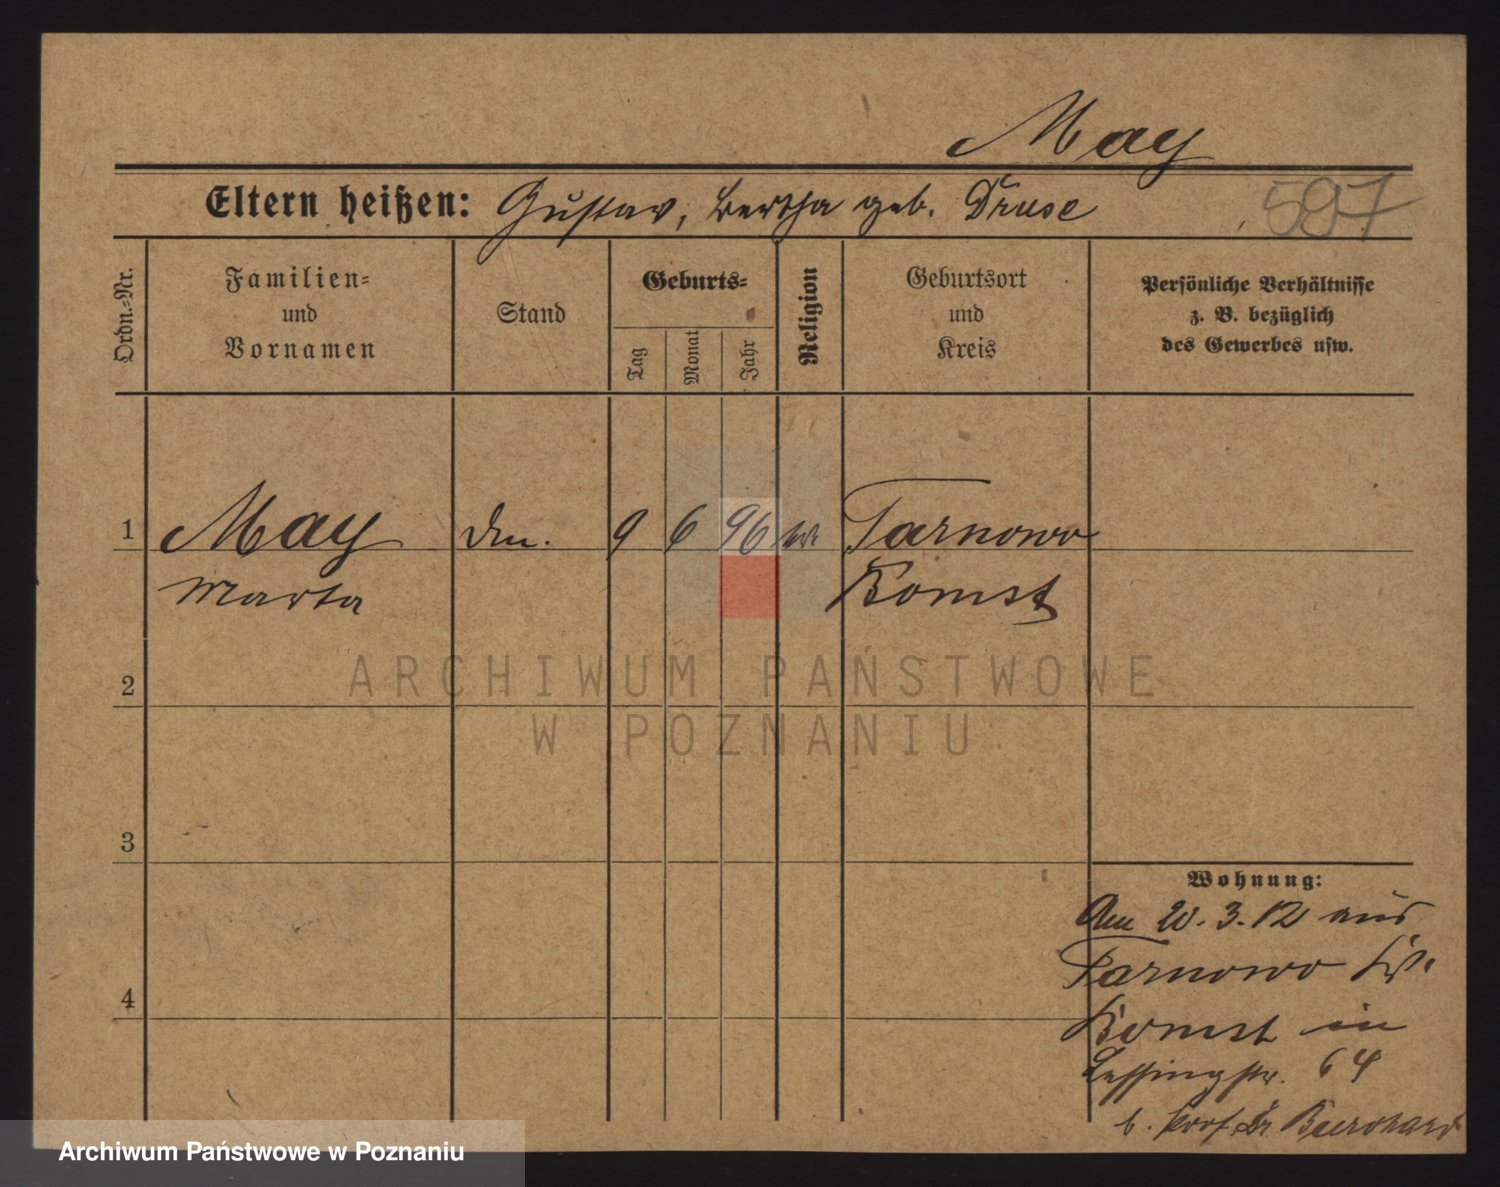 May
Eltern heißen: Gustav, Bertha geb. Druse
597
Ordn.-Nr.
Familien-
und
Vornamen
Stand
Geburts-
Tag
Monat
Jahr
Religion
Geburtsort
und
Kreis
Persönliche Verhältnisse
z. B. bezüglich
des Gewerbes usw.
1 May 9 6 96 Tarnowo
Marta Bomst
ARCHIWUM PAŃSTWOWE
2
W POZNANIU
3
Wohnung:
Am 20.3.12 aus
Tarnowo
4
Bomst in
Lessingstr. 64
b. Prof. Dr.
Archiwum Państwowe w Poznaniu